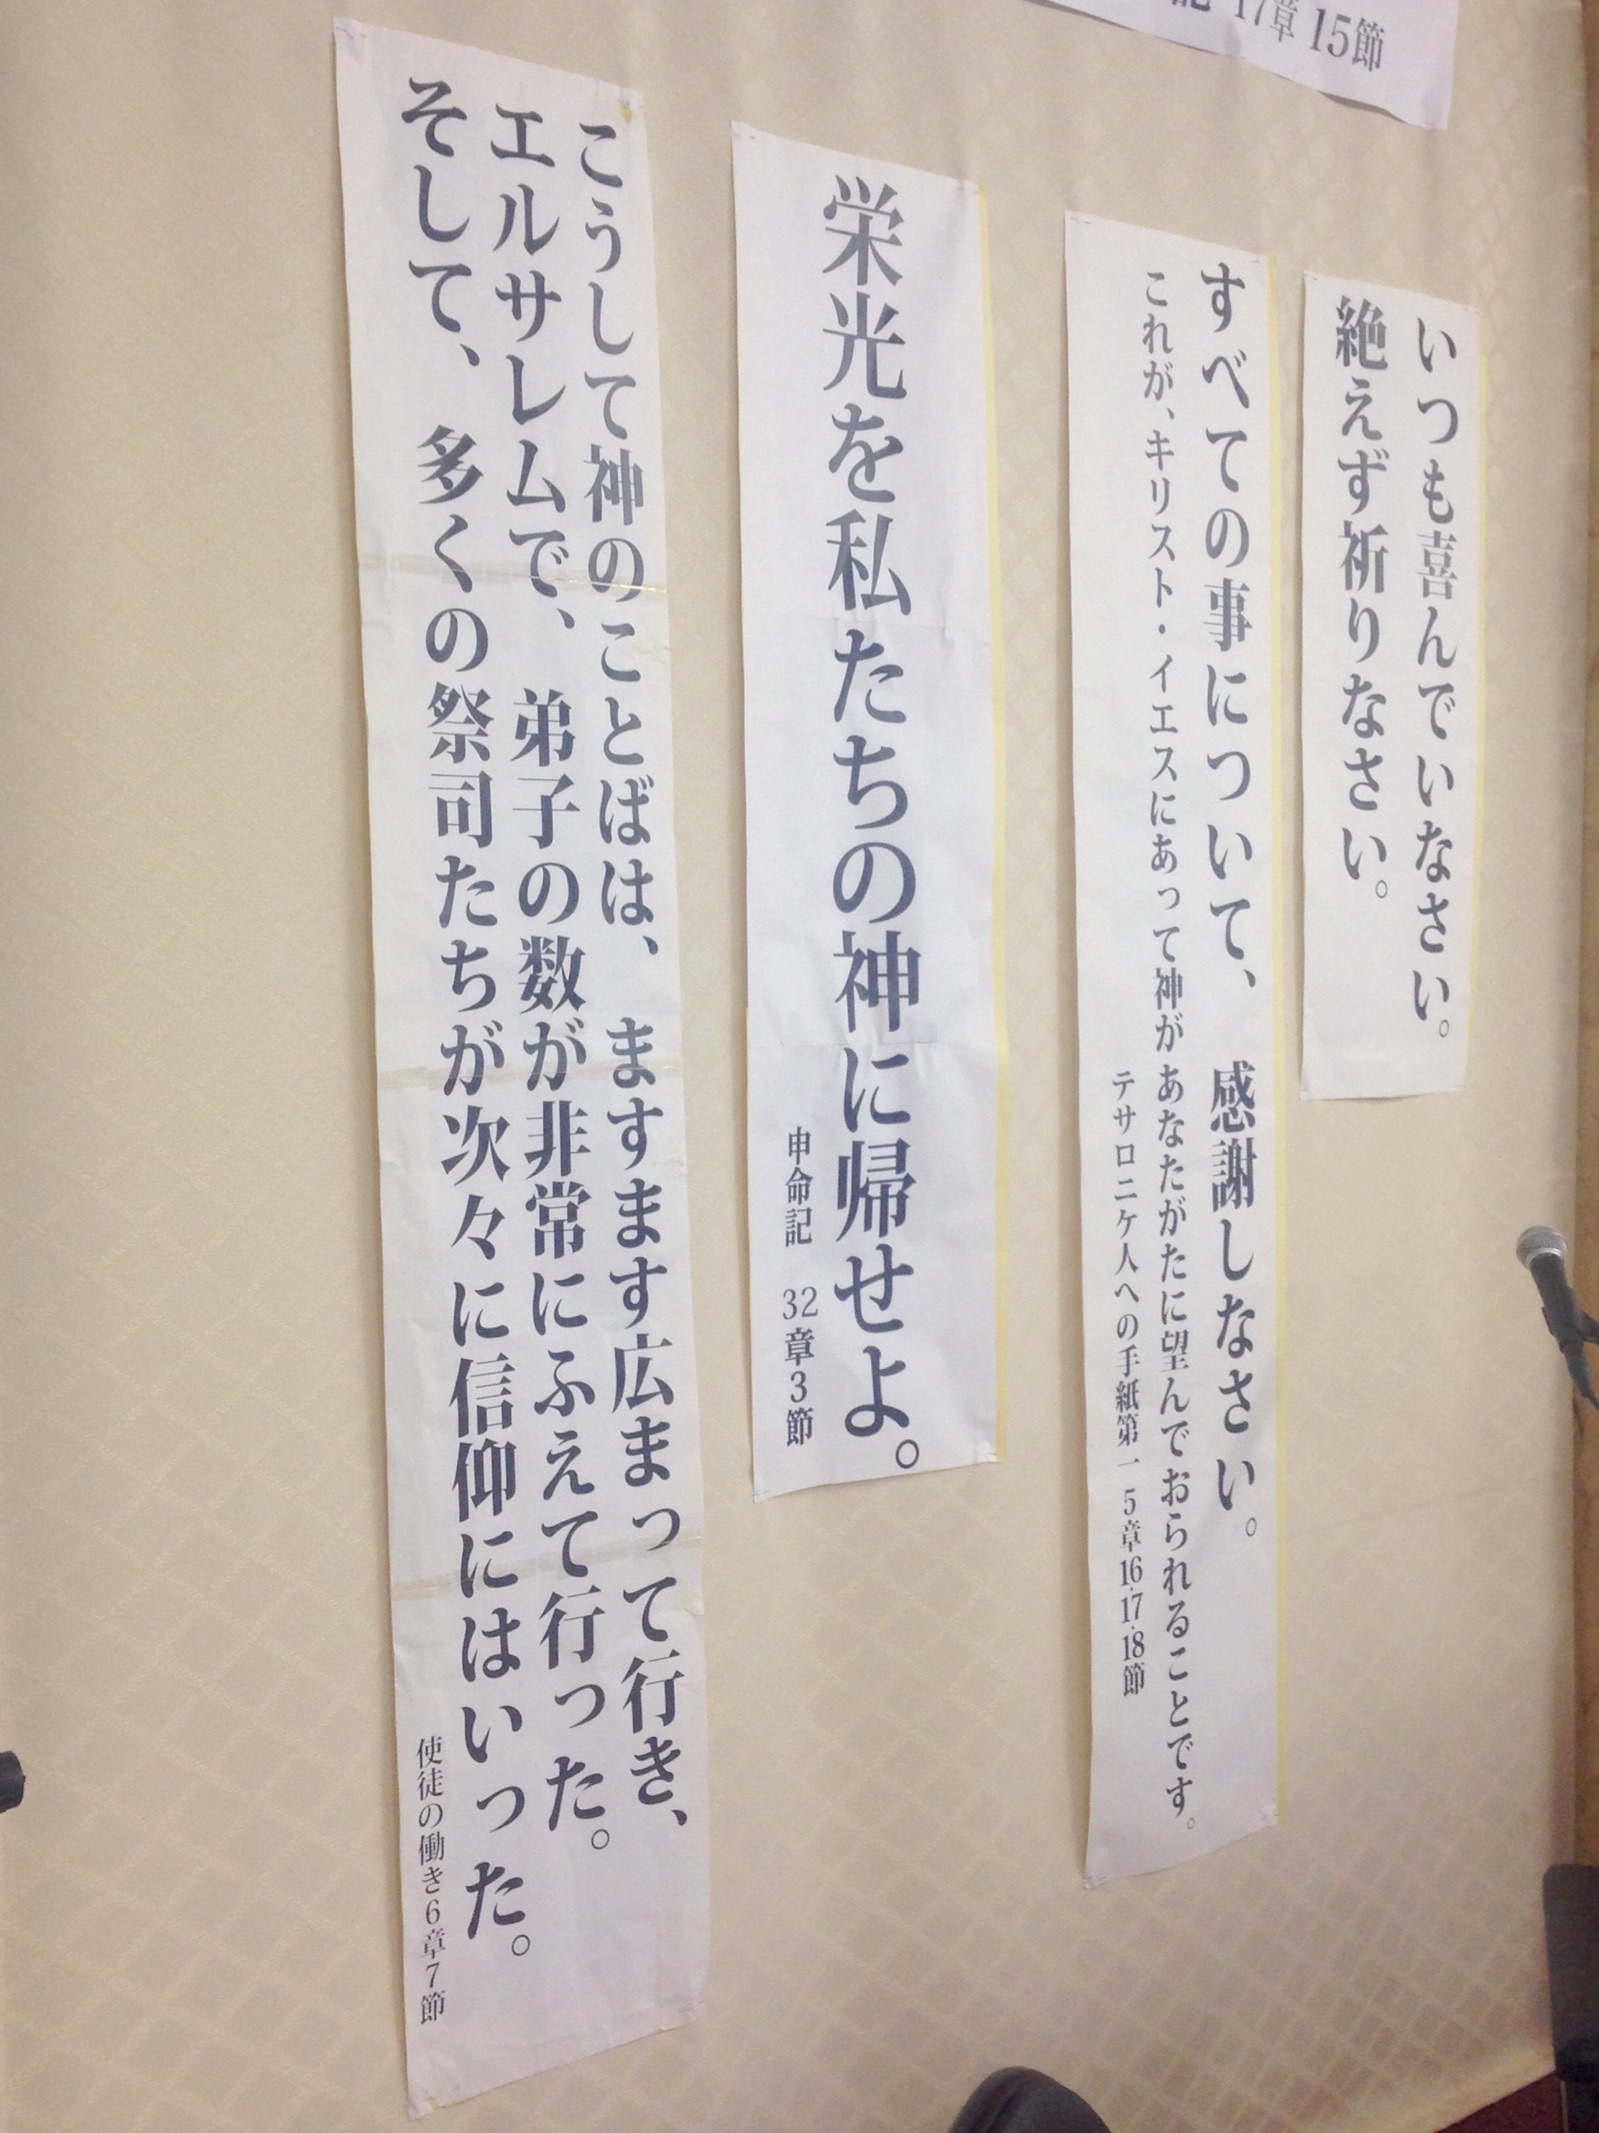 17章 15節
いつも喜んでいなさい。
絶えず祈りなさい。
すべての事について、感謝しなさい。
これが、キリスト・イエスにあって神があなたがたに望んでおられることです。
テサロニケ人への手紙第一 5章16・17・18節
栄光を私たちの神に帰せよ。
申命記 32章3節
こうして神のことばは、ますます広まって行き、
エルサレムで、弟子の数が非常にふえて行った。
そして、多くの祭司たちが次々に信仰にはいった。
使徒の働き6章7節